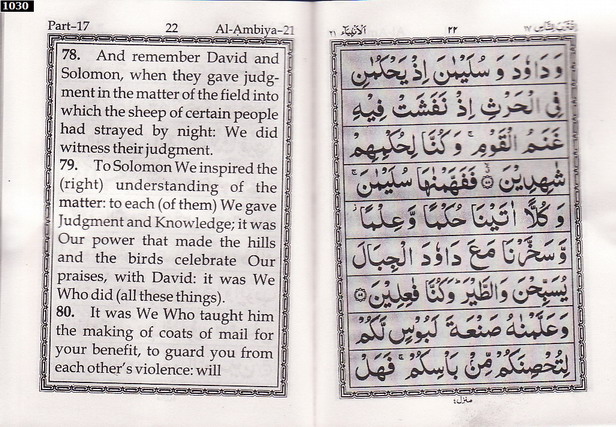 1030
Part–17 22 Al-Ambiya–21
78. And remember David and
Solomon, when they gave judg-
ment in the matter of the field into
which the sheep of certain people
had strayed by night: We did
witness their judgment.
79. To Solomon We inspired the
(right) understanding of the
matter: to each (of them) We gave
Judgment and Knowledge; it was
Our power that made the hills
and the birds celebrate Our
praises, with David: it was We
Who did (all these things).
80. It was We Who taught him
the making of coats of mail for
your benefit, to guard you from
each other's violence: will
٢٢ الأنبياء ٢١
وَدَاوٗدَ وَ سُلَيْمٰنَ اِذْ يَحْكُمٰنِ
فِي الْحَرْثِ اِذْ نَفَشَتْ فِيْهِ
غَنَمُ الْقَوْمِ ۚ وَكُنَّا لِحُكْمِهِمْ
شٰهِدِيْنَ فَفَهَّمْنٰهَا سُلَيْمٰنَ ۚ
وَ كُلًّا اٰتَيْنَا حُكْمًا وَّ عِلْمًا
وَّسَخَّرْنَا مَعَ دَاوٗدَ الْجِبَالَ
يُسَبِّحْنَ وَالطَّيْرَ ؕ وَكُنَّا فٰعِلِيْنَ
وَعَلَّمْنٰهُ صَنْعَةَ لَبُوْسٍ لَّكُمْ
لِتُحْصِنَكُمْ مِّنْۢ بَاْسِكُمْ ۚ فَهَلْ
منزل٤